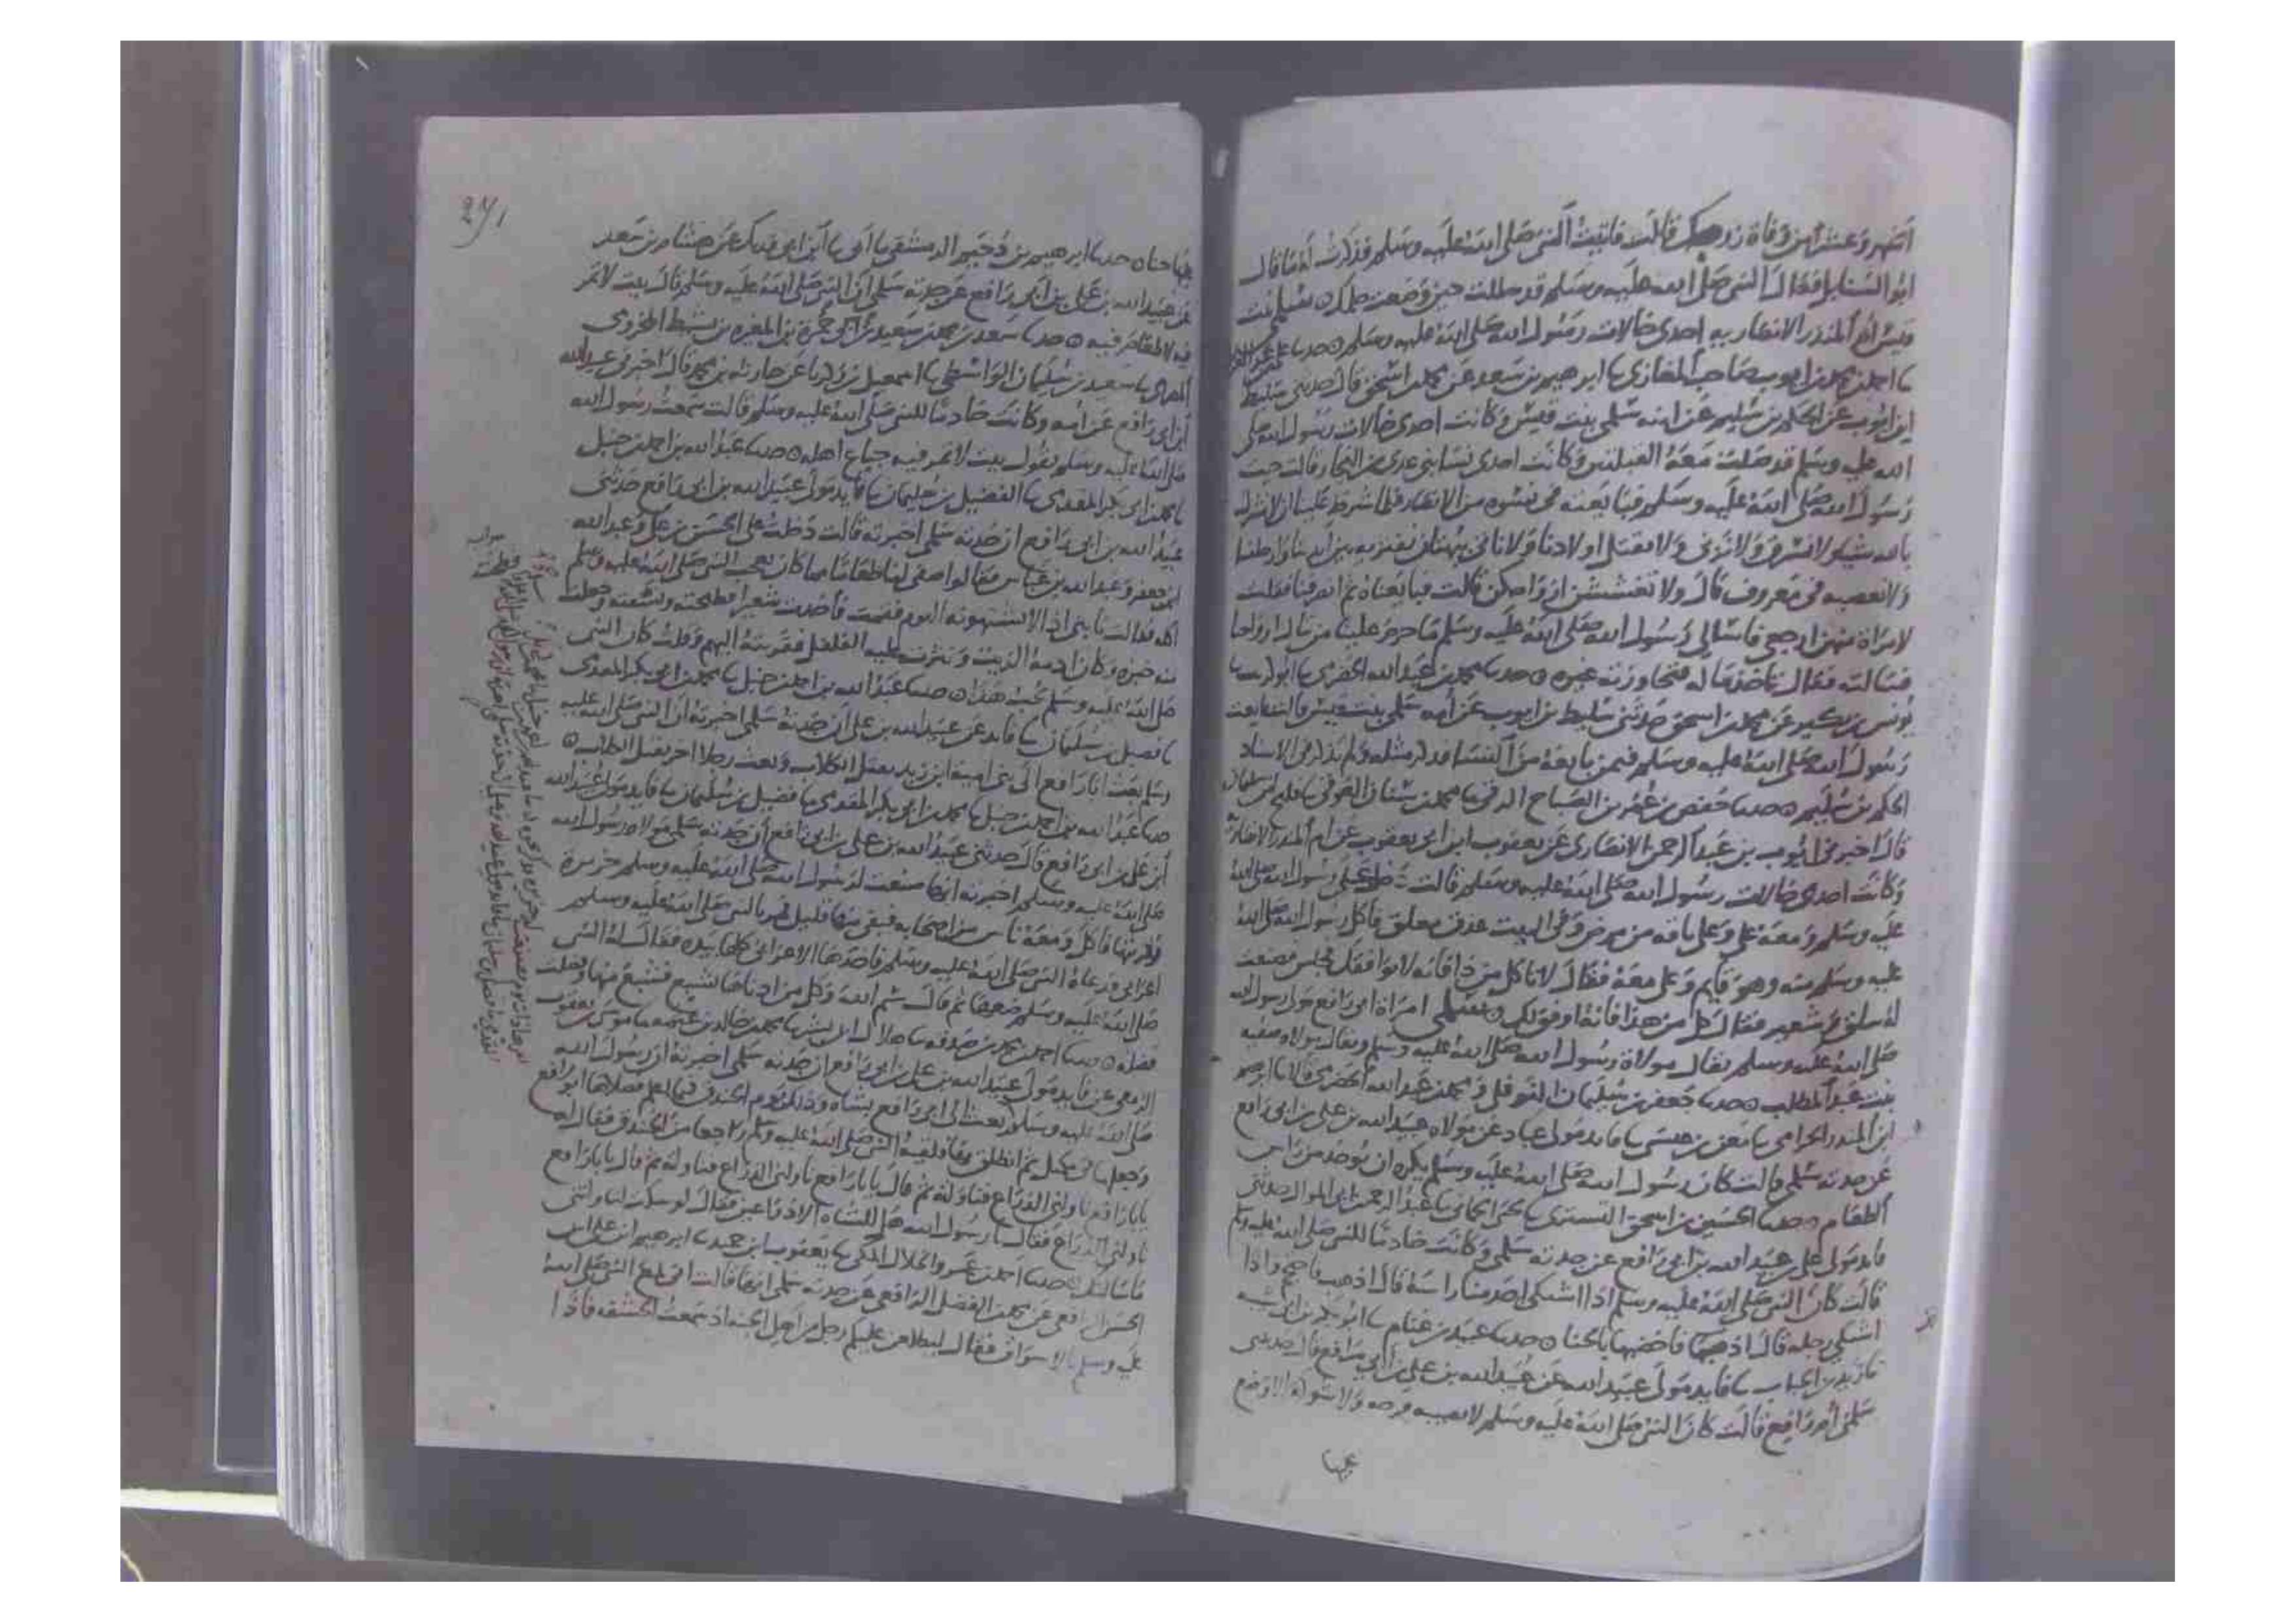 اشهر وعشرا من وفاة زوجك قالت فاتيت النبي صلى الله عليه وسلم فذكرت له ما قال
ابو السنابل فقال النبي صلى الله عليه وسلم قد حللت حين وضعت حملك ٥ سلمى بنت
قيس ام المنذر الانصاريه احدى خالات رسول الله صلى الله عليه وسلم ٥ حدثنا علي بن عبد العزيز
نا احمد بن محمد بن ايوب صاحب المغازي نا ابرهيم بن سعد عن محمد بن اسحق قال حدثني سليط
ابن ايوب عن الحكم بن سليم عن امه سلمى بنت قيس وكانت احدى خالات رسول الله صلى
الله عليه وسلم قد صلت معه القبلتين وكانت احدى نسا بني عدي بن النجار قالت جيت
رسول الله صلى الله عليه وسلم فبايعته في نسوه من الانصار فلما شرط علينا ان لا نشرك
بالله شيا ولا نسرق ولا نزني ولا نقتل اولادنا ولا ناتي ببهتان نفتريه بين ايدينا وارجلنا
ولا نعصيه في معروف قال ولا تغششن ازواجكن قالت فبايعناه ثم انصرفنا فقلت
لامراة منهن ارجعي فاسالي رسول الله صلى الله عليه وسلم ما حرم علينا من مال ازواجنا
فسالته فقال تاخذ ماله فتحابي به غيره ٥ حدثنا محمد بن عبد الله الحضرمي نا ابو كريب نا
يونس بن بكير عن محمد بن اسحق حدثني سليط بن ايوب عن امه سلمى بنت قيس قالت بايعت
رسول الله صلى الله عليه وسلم فيمن بايعه من النسا فذكر مثله ولم يذكر في الاسناد
الحكم بن سليم ٥ حدثنا حفص بن عمر بن الصباح الرقي نا محمد بن سنان العوقي نا فليح بن سليمان
قال اخبرني ايوب بن عبد الرحمن الانصاري عن يعقوب ابن ابي يعقوب عن ام المنذر الانصارية
وكانت احدى خالات رسول الله صلى الله عليه وسلم قالت دخل علي رسول الله صلى الله
عليه وسلم ومعه علي وعلي ناقه من مرض وفي البيت عذق معلق فاكل رسول الله صلى الله
عليه وسلم منه وهو قايم وعلي معه فقال لا تاكل من ذا فانه لا يوافقك فجلس فصنعت
له سلق وشعير فقال كل من هذا فانه اوفق لك ٥ سلمى امراة ابي رافع مولى رسول الله
صلى الله عليه وسلم يقال مولاة رسول الله صلى الله عليه وسلم ويقال مولاة صفيه
بنت عبد المطلب ٥ حدثنا جعفر بن سليمان النوفلي ومحمد بن عبد الله الحضرمي قالا نا ابرهيم
ابن المنذر الحزامي نا معن بن عيسى نا فايد مولى عباد عن مولاه عبيد الله بن علي بن ابي رافع
عن جدته سلمى قالت كان رسول الله صلى الله عليه وسلم يكره ان يوخذ من راس
الطعام ٥ حدثنا الحسين بن اسحق التستري نا يحيى الحماني نا عبد الرحمن بن ابي الموال حدثني
فايد مولى علي بن عبيد الله بن ابي رافع عن جدته سلمى وكانت خادما للنبي صلى الله عليه وسلم
قالت كان النبي صلى الله عليه وسلم اذا اشتكى احد منا راسه قال اذهب فاحتجم واذا
اشتكى رجله قال اذهب فاخضبها بالحنا ٥ حدثنا عبيد بن غنام نا ابو بكر بن ابي شيبه
نا زيد بن الحباب نا فايد مولى عبيد الله عن عبيد الله بن علي بن ابي رافع قال حدثتني
سلمى ام رافع قالت كان النبي صلى الله عليه وسلم لا تصيبه قرحه ولا شوكة الا وضع
عليها
271
عليها حنا ٥ حدثنا ابرهيم بن دحيم الدمشقي نا ابي نا ابن ابي فديك عن هشام بن سعد
عن عبيد الله بن علي بن ابي رافع عن جدته سلمى ان النبي صلى الله عليه وسلم قال بيت لا تمر
فيه لا طعام فيه ٥ حدثنا سعد بن محمد بن سعيد بن ابي حمزة بن المغيره بن نشيط المخزومي
نا سعيد بن سليمان الواسطي نا اسمعيل بن زكريا عن حارثه بن محمد قال اخبرني عبيد الله
ابن ابي رافع عن امه وكانت خادما للنبي صلى الله عليه وسلم قالت سمعت رسول الله
صلى الله عليه وسلم يقول بيت لا تمر فيه جياع اهله ٥ حدثنا عبد الله بن احمد بن حنبل
نا محمد بن ابي بكر المقدمي نا الفضيل بن سليمان نا فايد مولى عبيد الله بن ابي رافع حدثني
عبيد الله بن ابي رافع ان جدته سلمى اخبرته قالت دخل علي الحسن بن علي وعبد الله
ابن جعفر وعبد الله بن عباس فقالوا اصنعي لنا طعاما مما كان يعجب النبي صلى الله عليه وسلم
اكله فقالت يا بني اذا لا تشتهونه اليوم فقمت فاخذت شعيرا فطحنته ونسفته وجعلت
منه خبزه وكان ادمه الزيت ونثرت عليه الفلفل فقربته اليهم وقلت كان النبي
صلى الله عليه وسلم يحب هذا ٥ حدثنا عبد الله بن احمد بن حنبل نا محمد بن ابي بكر المقدمي
نا فضيل بن سليمان نا فايد عن عبيد الله بن علي ان جدته سلمى اخبرته ان النبي صلى الله عليه
وسلم بعث ابا رافع الى بني امية ابن زيد بقتل الكلاب وبعث رجلا اخر بقتل الكلاب ٥
حدثنا عبد الله بن احمد بن حنبل نا محمد بن ابي بكر المقدمي نا فضيل بن سليمان نا فايد مولى عبيد الله
ابن علي بن ابي رافع قال حدثني عبيد الله بن علي بن ابي رافع ان جدته سلمى مولاة رسول الله
صلى الله عليه وسلم اخبرته انها صنعت لرسول الله صلى الله عليه وسلم خزيرة
وقربتها فاكل ومعه ناس من اصحابه فبقي منها قليل فمر بالنبي صلى الله عليه وسلم
اعرابي فدعاه النبي صلى الله عليه وسلم فاخذها الاعرابي كلها بيده فقال له النبي
صلى الله عليه وسلم ضعها ثم قال سم الله وكل من ادناها تشبع فشبع منها وفضلت
فضله ٥ حدثنا احمد بن محمد بن صدقه نا هلال نا محمد بن خالد بن عثمه نا موسى بن يعقوب
الزمعي عن فايد مولى عبيد الله بن علي بن ابي رافع ان جدته سلمى اخبرته ان رسول الله
صلى الله عليه وسلم بعث الى ابي رافع بشاه وذلك يوم الخندق فيما اعلم فصلاها ابو رافع
وجعلها في مكتل ثم انطلق بها فلقيه النبي صلى الله عليه وسلم راجعا من الخندق فقال له
يا با رافع ناولني الذراع فناوله ثم قال يا با رافع ناولني الذراع فناوله ثم قال يا با رافع
ناولني الذراع فقال يا رسول الله هل للشاة الا ذراعين فقال لو سكت لناولتني
ما سالتك ٥ حدثنا احمد بن عمرو الخلال المكي نا يعقوب ابن حميد نا ابرهيم ابن علي بن
الحسن الرافعي عن محمد بن الفضل الرافعي عن جدته سلمى انها قالت اني مع النبي صلى الله
عليه وسلم بالاسواف فقال ليطلعن عليكم رجل من اهل الجنه اذ سمعت الخشفه فاذا